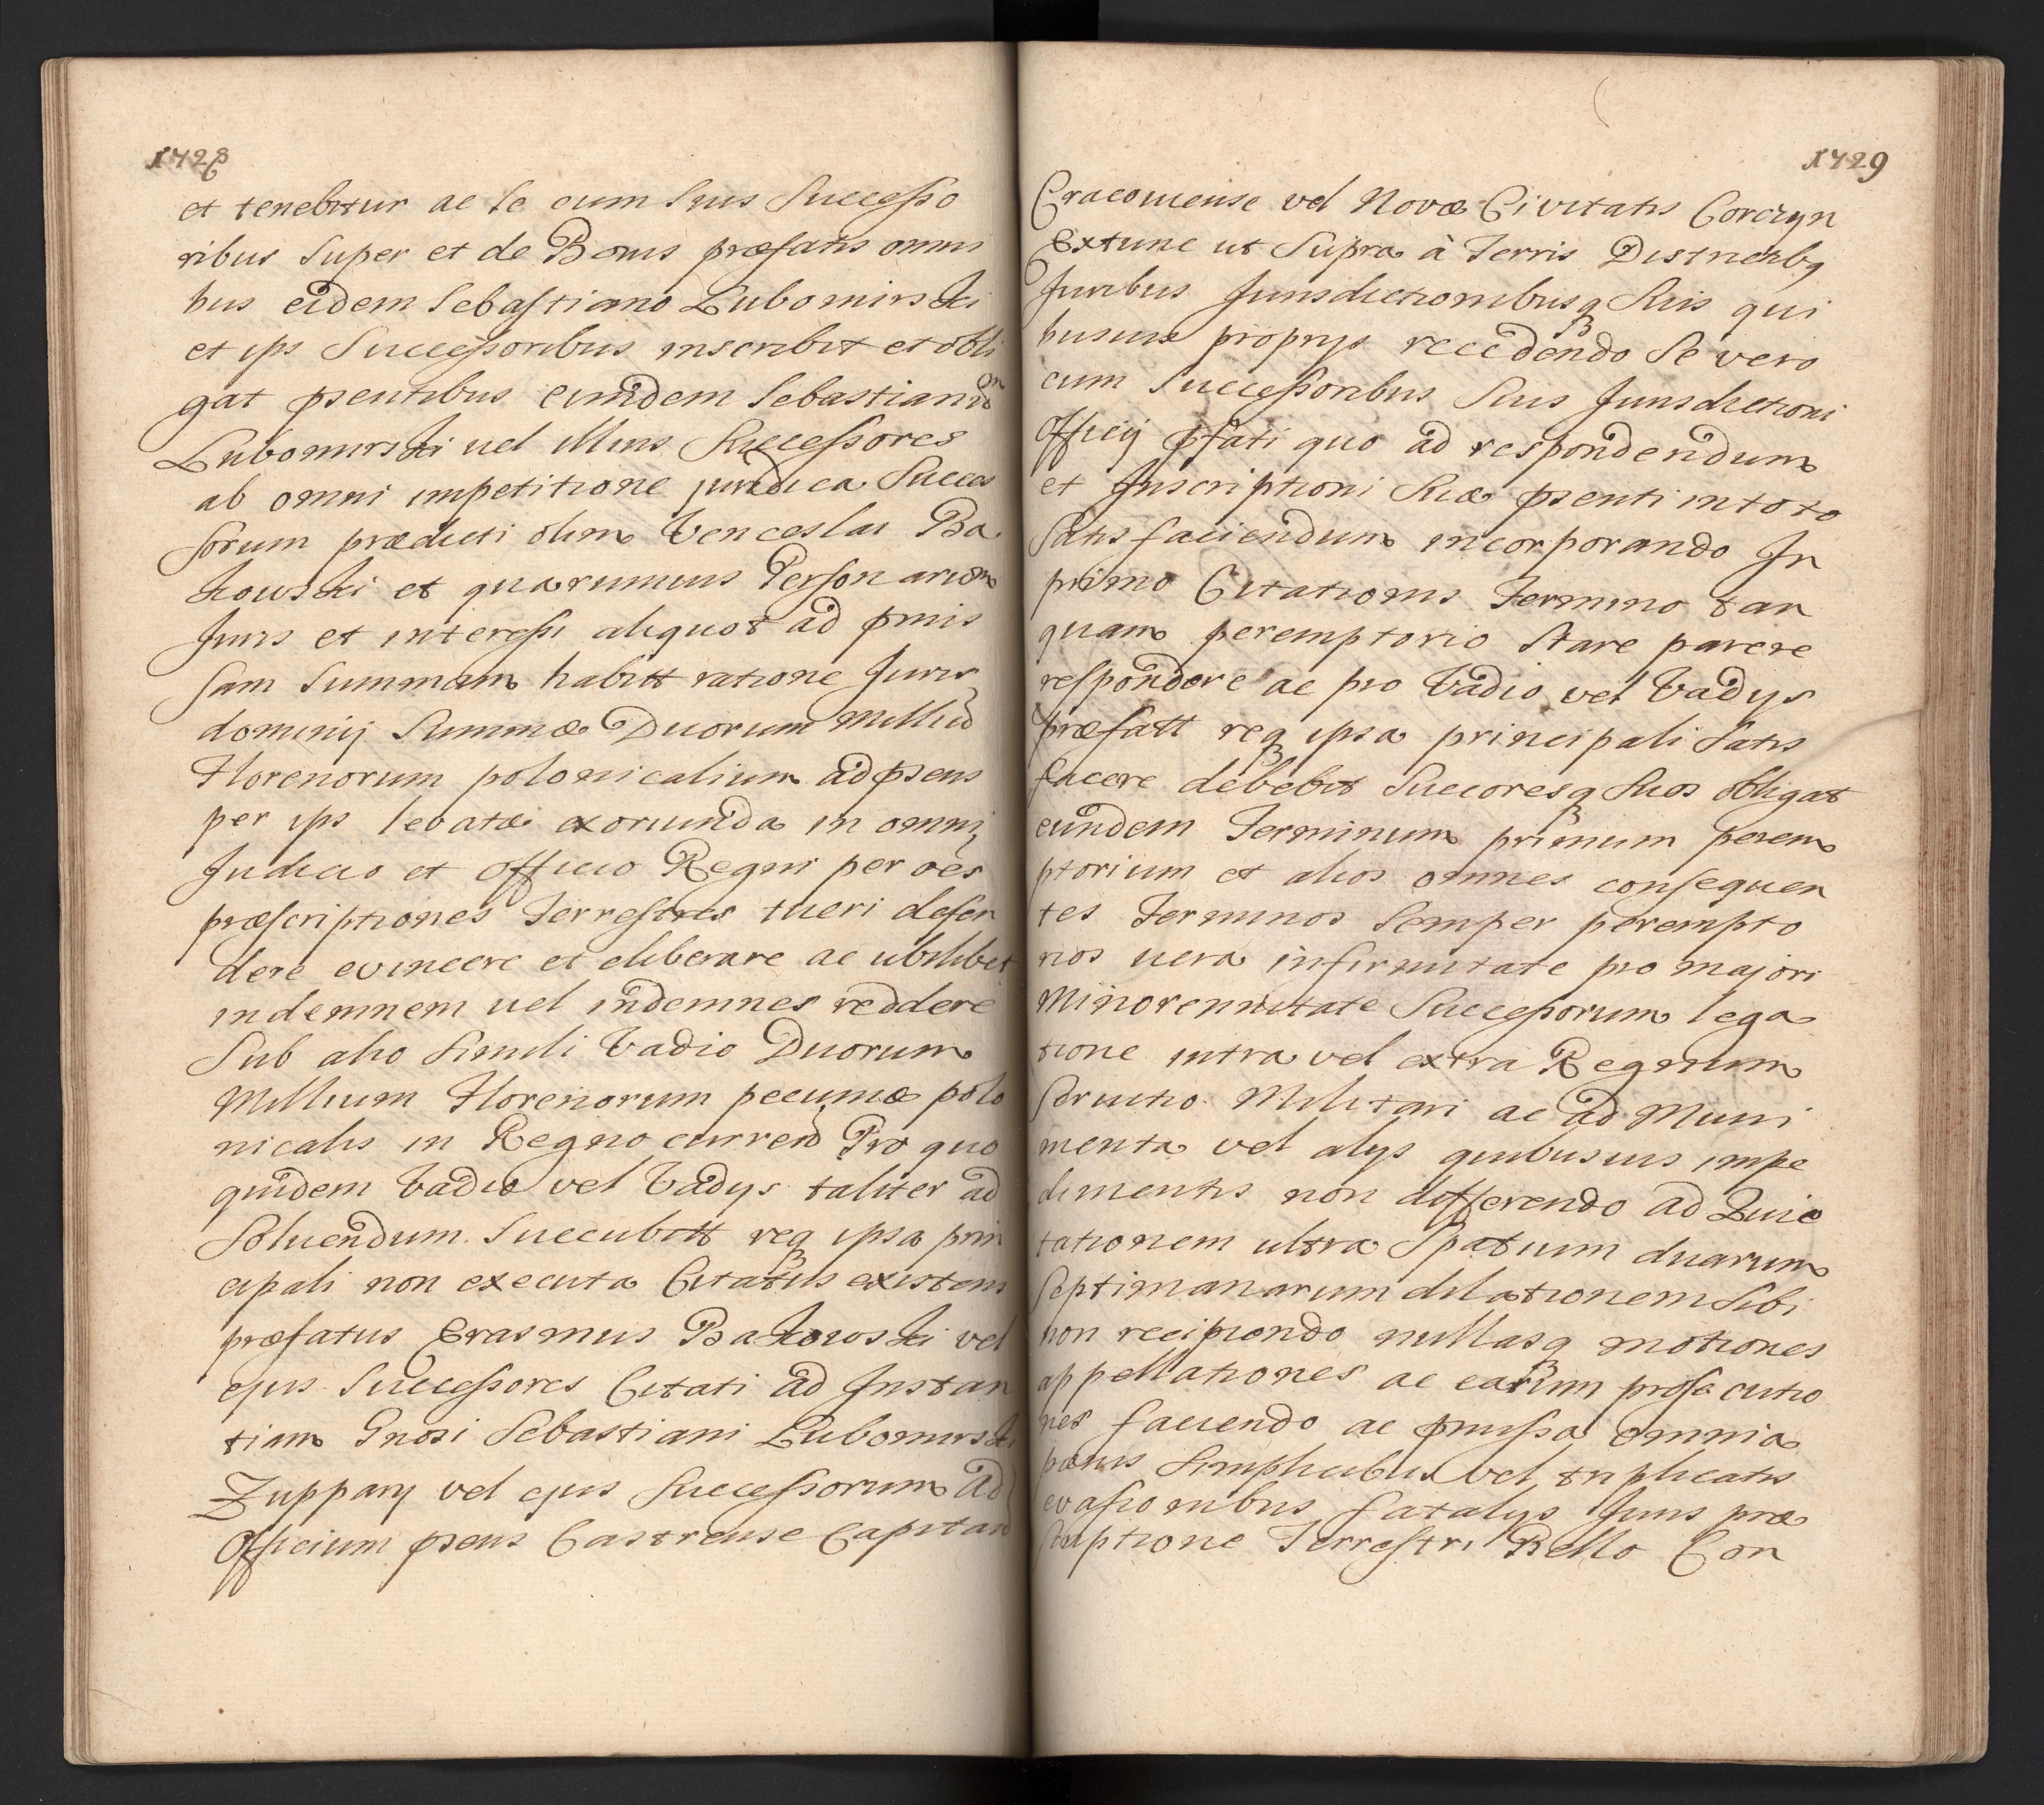 1428
et tenebitur ac se cum suis Successo
ribus super et de Bonis præfatis omni
bus eidem Sebastiano Lubomirski
et ips Successoribus inscribit et obli
gat psentibus eundem Sebastianum
Lubomirski uel illius Successores
ab omni impetitione juridica Succes
sorum prædicti olim Venceslai Ba
kowski et quarumuis Personarum
Juris et interessi aliquot ad pmis
sam Summam habitt ratione Juris
dominij Summæ Duorum Milliū
Florenorum polonicalium ad psens
per ips levatæ exoriunda in omni
Judicio et officio Regni per oēs
præscriptiones Terrestres tueri defen
dere evincere et eliberare ac ubilibet
indemnem uel indemnes reddere
Sub alio Simili Vadio Duorum
Millium Florenorum pecuniæ polo
nicalis in Regno curren Pro quo
quidem Vadio vel Vadijs taliter ad
Soluendum Succubitt req ipsa prin
cipali non executa Citatus existens
præfatus Erasmus Bakowski vel
ejus Successores Citati ad Instan
tiam Gnosi Sebastiani Lubomirski
Zupparij vel ejus Successorum Ad
Officium psens Castrense Capitan
1429
Cracouiense vel Novæ Civitatis Corczyn
Extunc ut Supra à Terris Districtibq
Juribus Jurisdictionibusq Suis qui
busuis proprijs recedendo Se vero
cum Successoribus Suis Jurisdictioni
Officij pfati quo ad respondendum
et Inscriptioni Suæ psenti in toto
Satisfaciendum incorporando In
primo Citationis Termino tan
quam peremptorio Stare parere
respondere ac pro Vadio vel Vadijs
præfatt req ipsa principali Satis
facere debebit Succoresq Suos obligat
eundem Terminum primum perem
ptorium et alios omnes consequen
tes Terminos Semper perempto
rios uera infirmitate pro majori
Minorennitate Successorum lega
tione intra vel extra Regnum
Seruitio Militari ac ad Muni
menta vel alijs quibusuis impe
dimentis non differendo ad Quie
tationem ultra Spatium duarum
Septimanarum dilationem Sibi
non recipiendo nullasq motiones
appellationes ac earum prosecutio
nes faciendo ac pmissa omnia
pænis Simplicibus vel triplicatis
evasionibus fatalijs Juris præ
scriptione Terrestri Bello Con